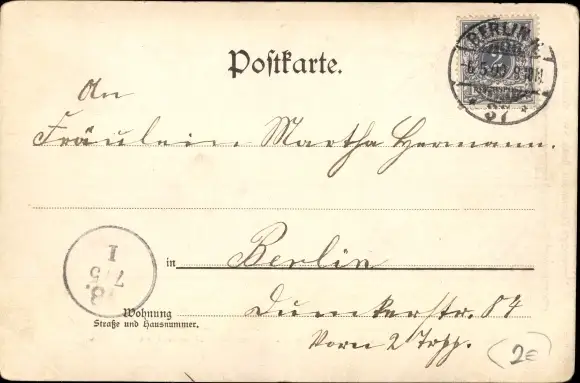 Postkarte.
BERLIN
2
6.5.99. 8-9N.
37
An
Fräulein Martha Hermann.
in Berlin
I
7/5
8.
Wohnung
Straße und Hausnummer.
Dunckerstr. 84
Vorn 2 Trpp.
(2€)